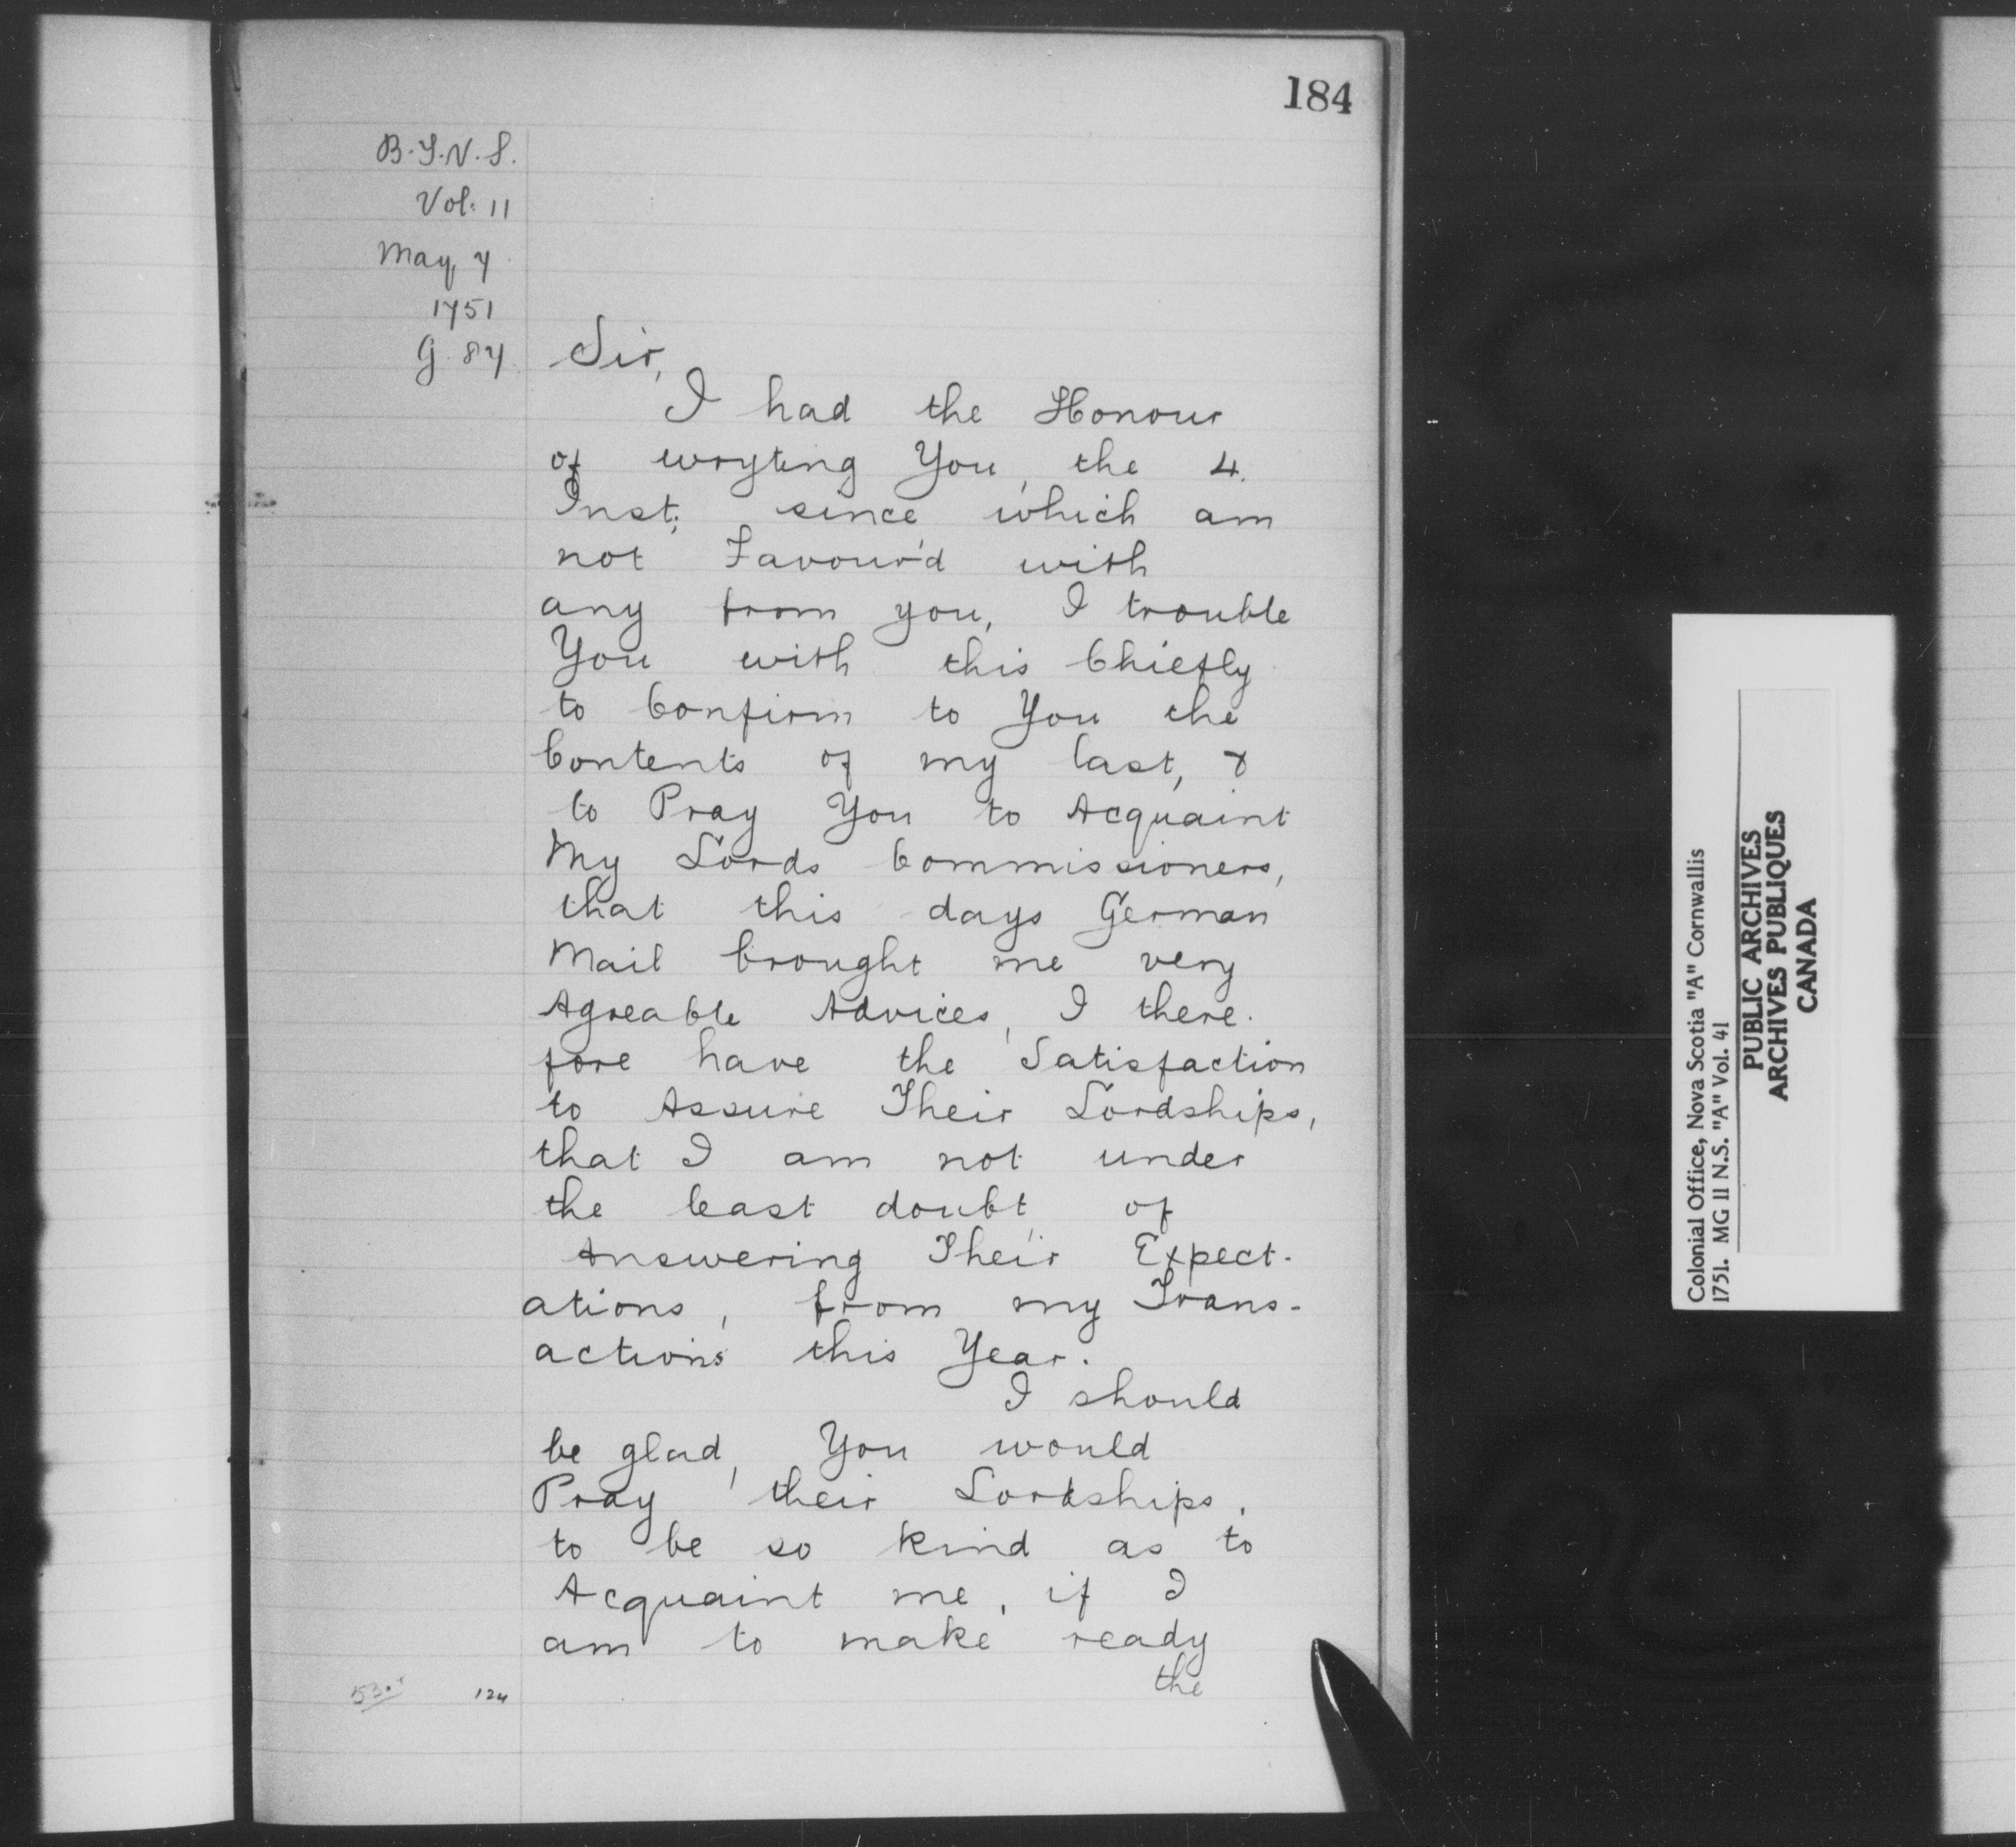 184
B.T.N.S.
Vol. 11
May 7
1751
G. 87
Sir,
I had the Honour
of wryting You, the 4.
Inst; since which am
not Favour'd with
any from you, I trouble
You with this Chiefly
to Confirm to You the
Contents of my last, &
to Pray You to Acquaint
My Lords Commissioners,
that this days German
Mail brought me very
Agreable Advices, I there-
fore have the Satisfaction
to Assure Their Lordships,
that I am not under
the least doubt, of
Answering Their Expect-
ations, from my Trans-
actions this Year.
I should
be glad, You would
Pray their Lordships,
to be so kind as to
Acquaint me, if I
am to make ready
the
53.
124
Colonial Office, Nova Scotia "A" Cornwallis
1751. MG 11 N.S. "A" Vol. 41
PUBLIC ARCHIVES
ARCHIVES PUBLIQUES
CANADA